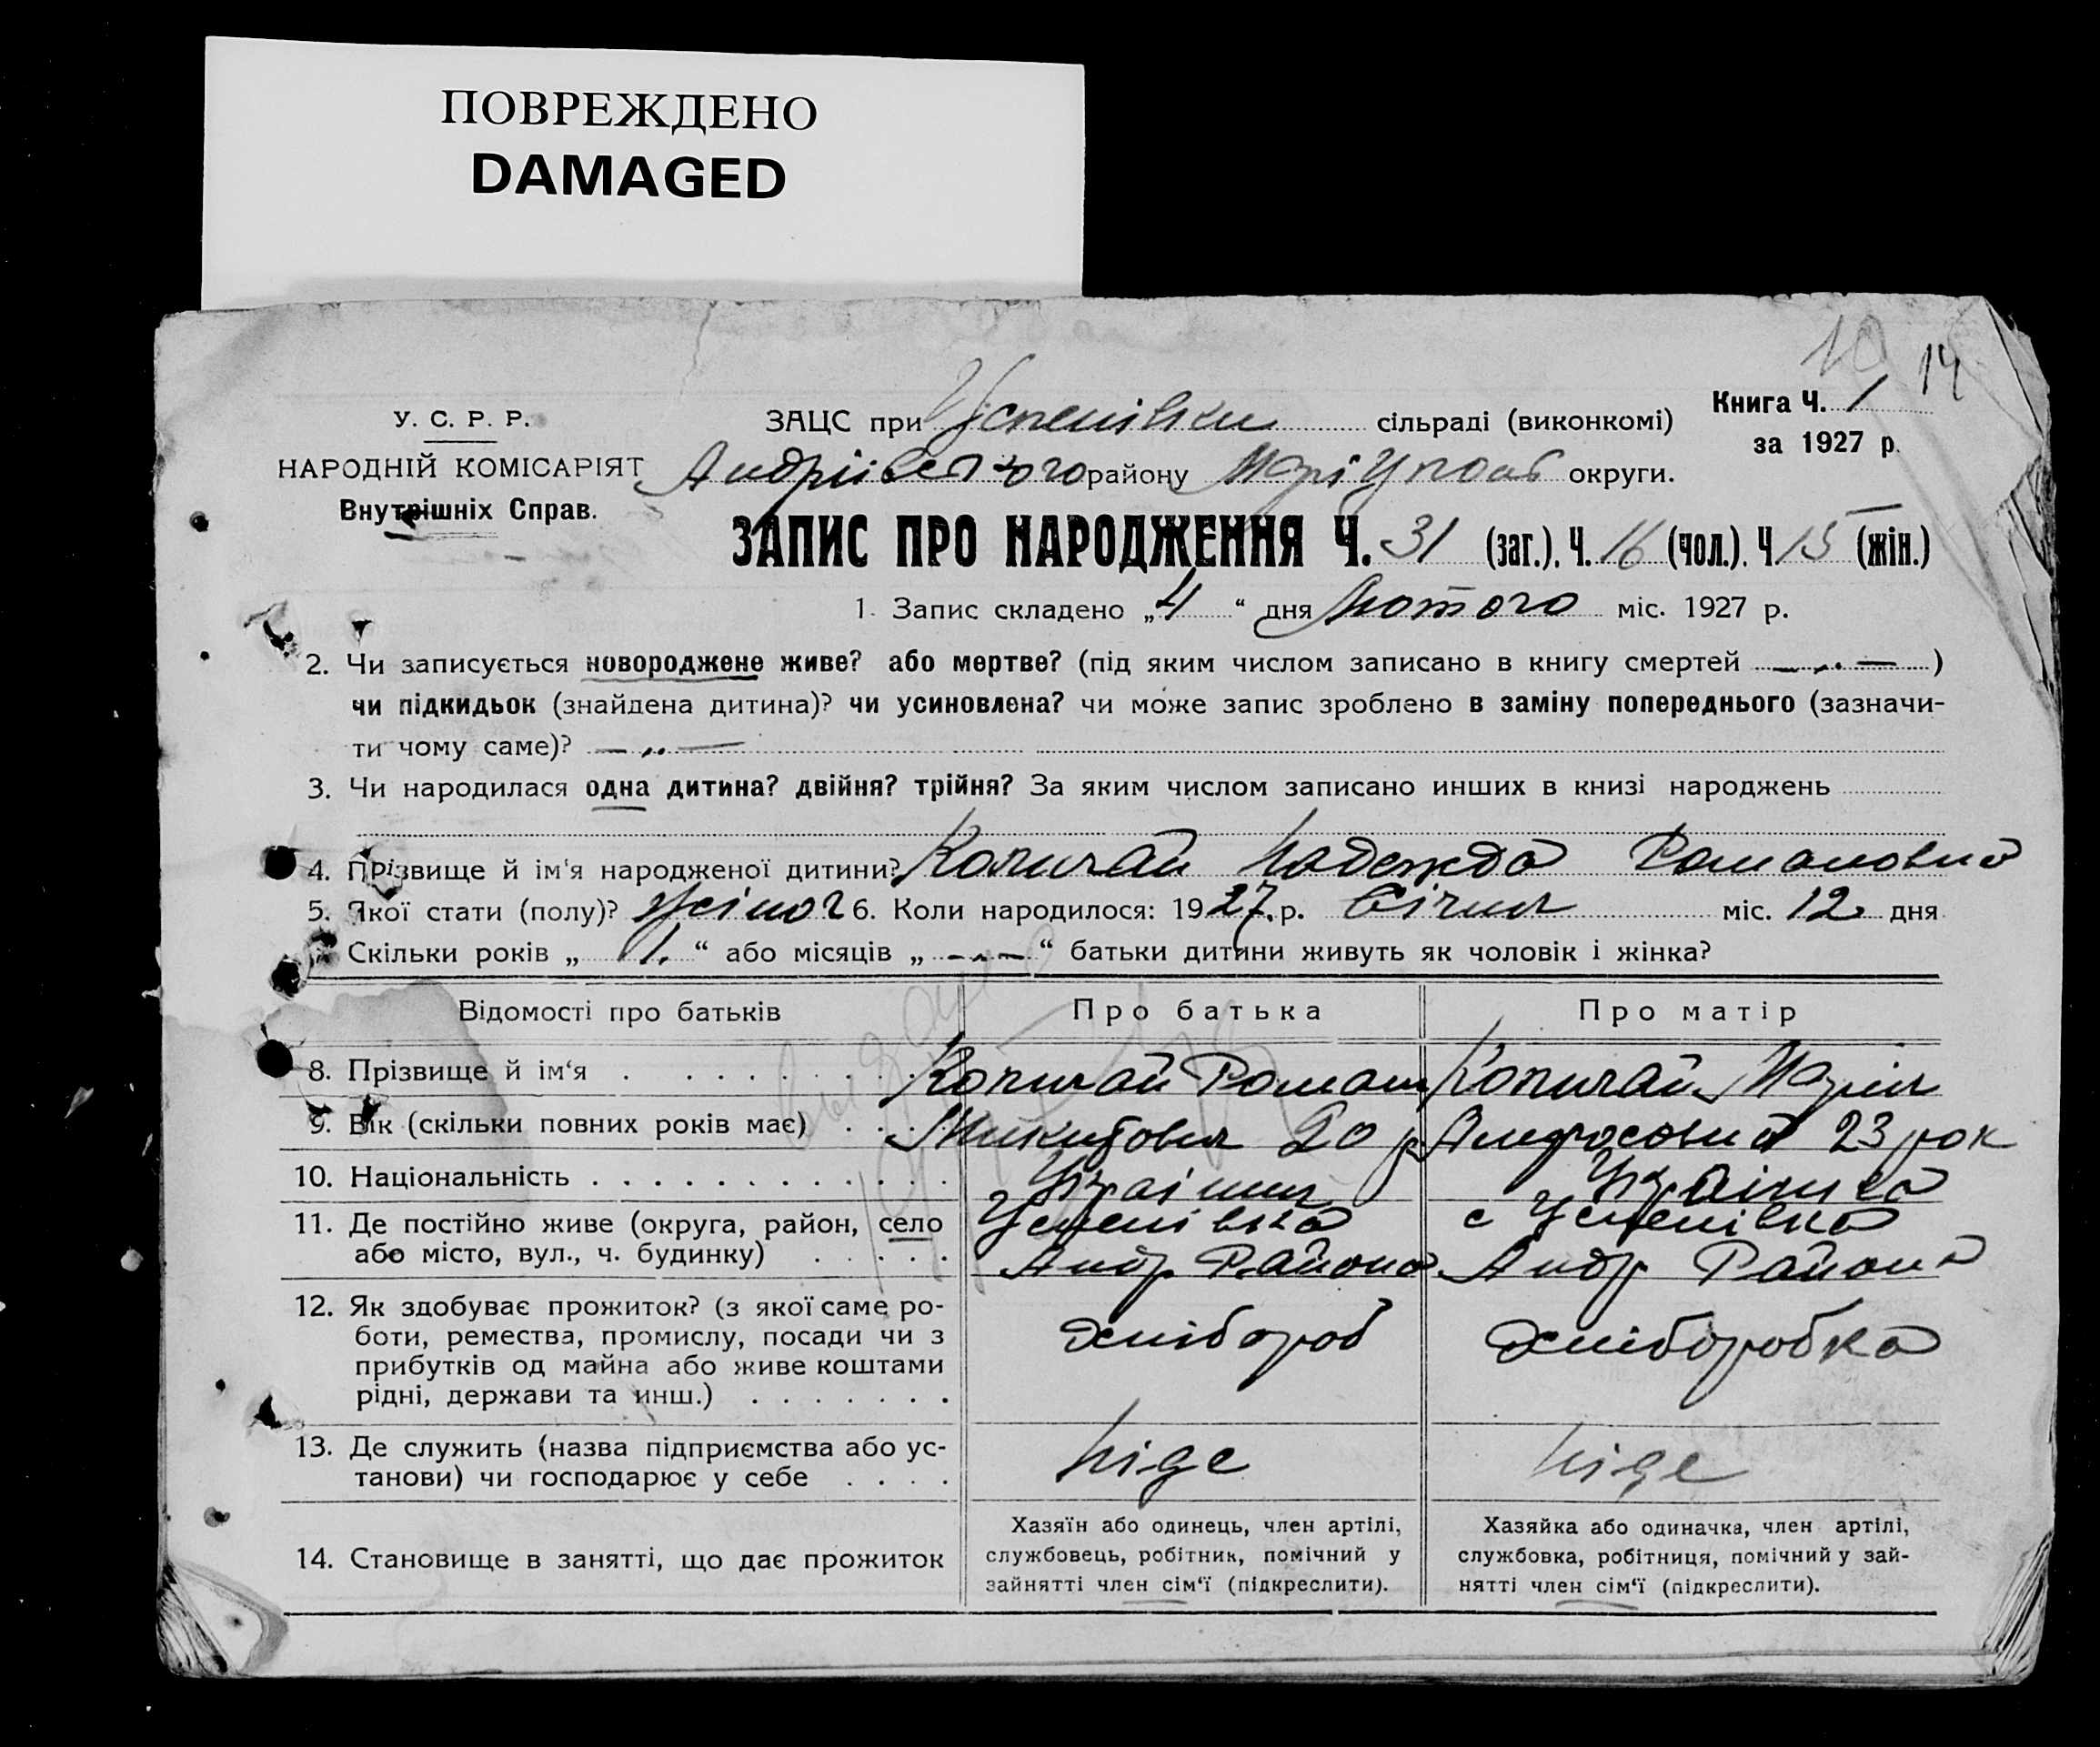 ПОВРЕЖДЕНО
DAMAGED
10 14
У. С. Р. Р.
НАРОДНІЙ КОМІСАРІЯТ
Внутрішніх Справ.
ЗАЦС при Успенівки сільраді (виконкомі)
Андріівського району Маріупол округи.
Книга Ч. 1
за 1927 р.
ЗАПИС ПРО НАРОДЖЕННЯ Ч. 31 (заг.), Ч. 16 (чол.), Ч 15 (жін.)
1. Запис складено „4“ дня Лютого міс. 1927 р.
2. Чи записується новороджене живе? або мертве? (під яким числом записано в книгу смертей — „ — )
чи підкидьок (знайдена дитина)? чи усиновлена? чи може запис зроблено в заміну попереднього (зазначи-
ти чому саме)? — „ —
3. Чи народилася одна дитина? двійня? трійня? За яким числом записано инших в книзі народжень
4. Прізвище й ім‘я народженої дитини? Копичай Надежда Романовна
5. Якої стати (полу)? жіноч 6. Коли народилося: 1927 р. Січня міс. 12 дня
Скільки років „ 1. “ або місяців „ — „ — “ батьки дитини живуть як чоловік і жінка?
Відомості про батьків
Про батька
Про матір
8. Прізвище й ім‘я
Копичай Роман
Копичай Марія
9. Вік (скільки повних років має)
Микитович 20 р
23 рок
10. Національність
Україниц
Українка
11. Де постійно живе (округа, район, село
або місто, вул., ч. будинку)
Успенівка
Андр. Района
с Успенівка
Андр Района
12. Як здобуває прожиток? (з якої саме ро-
боти, ремества, промислу, посади чи з
прибутків од майна або живе коштами
рідні, держави та инш.)
хлібороб
хліборобка
13. Де служить (назва підприємства або ус-
танови) чи господарює у себе
ніде
ніде
14. Становище в занятті, що дає прожиток
Хазяїн або одинець, член артілі,
службовець, робітник, помічний у
зайнятті член сім‘ї (підкреслити).
Хазяйка або одиначка, член артілі,
службовка, робітниця, помічний у зай-
нятті член сім‘ї (підкреслити).